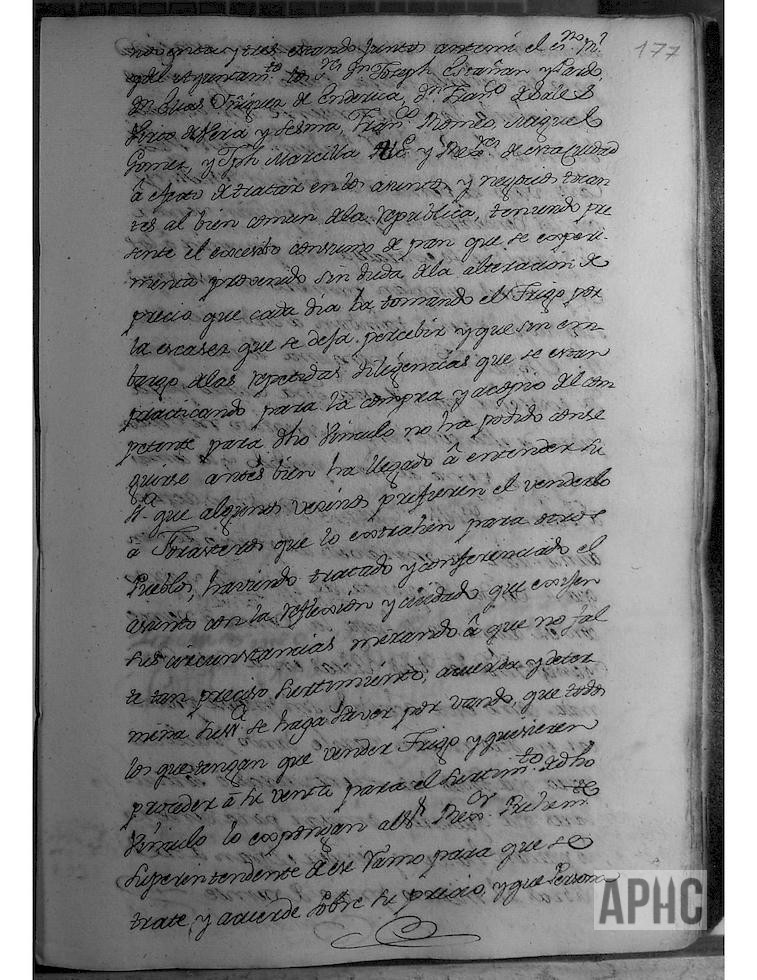 177
noventa y tres estando juntos ante mi el esno. Rl.
y del Ayuntamto. los Srs. Dn. Joseph Castañan y Pardo,
Dn. Lucas Iñiguez de Enderica, Dn. Franco. de Sales
Pico de Vera y Lesma, Franco. Romeo, Miguel
Gomez, y Jph Marcilla Ale. y Rexres. de esta Ciudad
â efecto de tratar en los asuntos y negocios tocan
tes al bien comun de la Republica, teniendo pre
sente el excesibo consumo de pan que se experi-
menta provenido sin duda de la alteracion de
precio que cada dia ba tomando el Trigo por
la escasez que se deja percebir y que sin em
bargo de las repetidas diligencias que se estan
practicando para la compra y acopio del com
petente para dho Vinculo no ha podido conse
guirse antes bien ha llegado â entender su
Sa. que algunos vecinos prefieren el venderlo
â Forasteros que lo extrahen para otros
Pueblos, haviendo tratado y conferenciado el
asunto con la reflexion y cuidado que exijen
sus circunstancias mirando â que no fal
te tan preciso surtimiento; acuerda y deter
mina Su Sa. se haga saver por vando, que todos
los que tengan que vender Trigo y quisieren
proceder â su venta para el surtimto. de dho
Vinculo lo expongan al Sr. Rexor. Prehemte.
Superintendente de ese Ramo para que se
trate, y acuerde sobre su precio, y que Persona
APHC